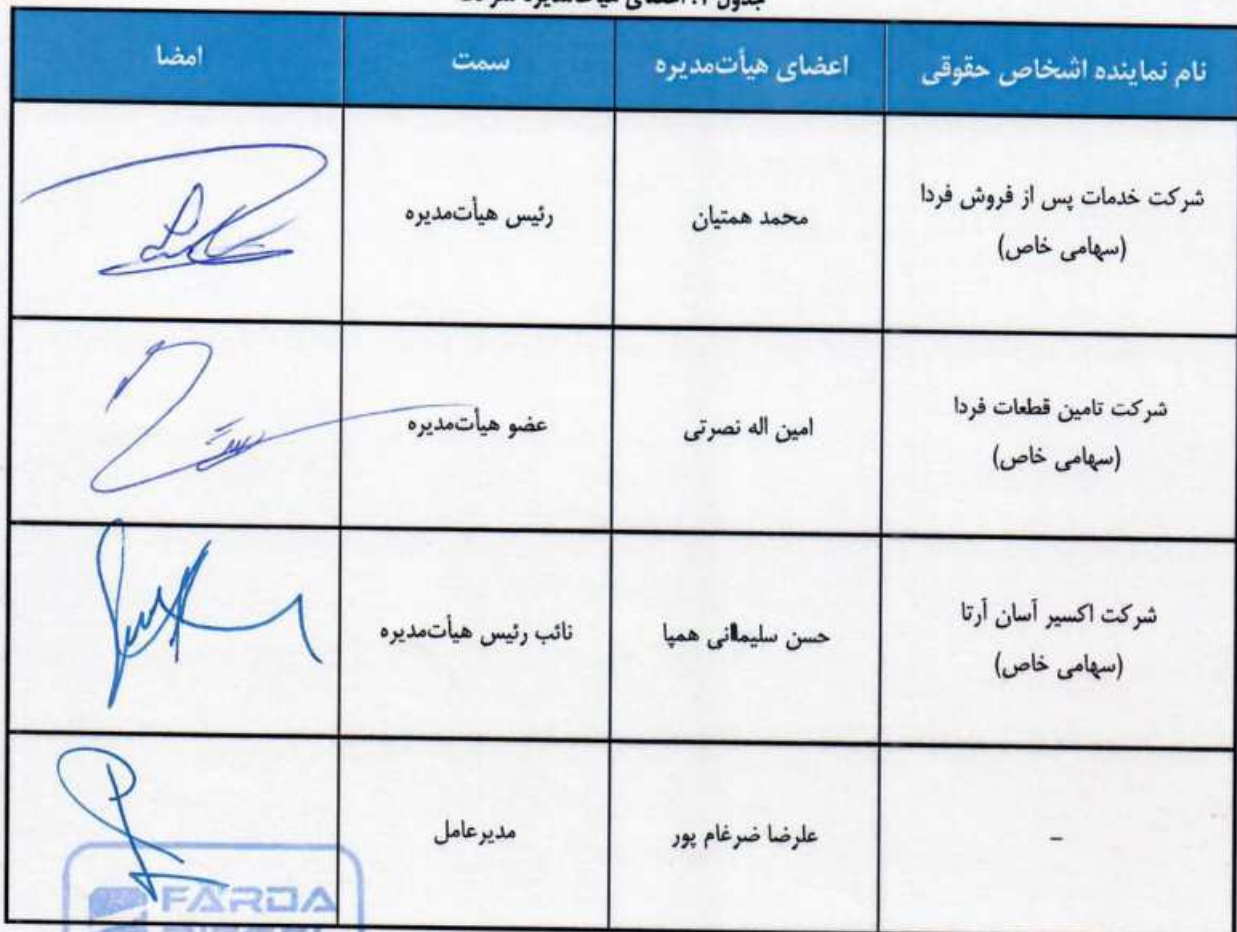 نام نماینده اشخاص حقوقی	اعضای هیأت‌مدیره	سمت	امضا
شرکت خدمات پس از فروش فردا
(سهامی خاص)
محمد همتیان
رئیس هیأت‌مدیره
شرکت تامین قطعات فردا
(سهامی خاص)
امین اله نصرتی
عضو هیأت‌مدیره
شرکت اکسیر آسان آرتا
(سهامی خاص)
حسن سلیمانی همپا
نائب رئیس هیأت‌مدیره
–
علرضا ضرغام پور
مدیرعامل
FARDA